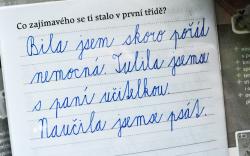 Co zajímavého se ti stalo v první třídě?
Byla jsem skoro pořád
nemocná. Tulila jsem se
s paní učitelkou.
Naučila jsem psát.